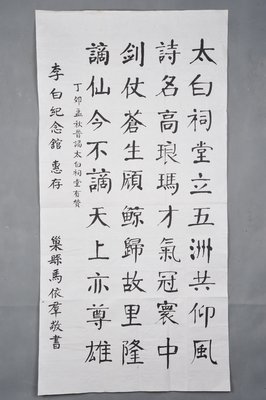 太白祠堂立五洲共仰風
詩名高琅瑪才氣冠寰中
劍仗蒼生頋鲸歸故里隆
謫仙今不謫天上亦尊雄
丁卯孟秋昔謁太白祠堂有贊
李白纪念館 惠存
巢縣馬依羣敬書